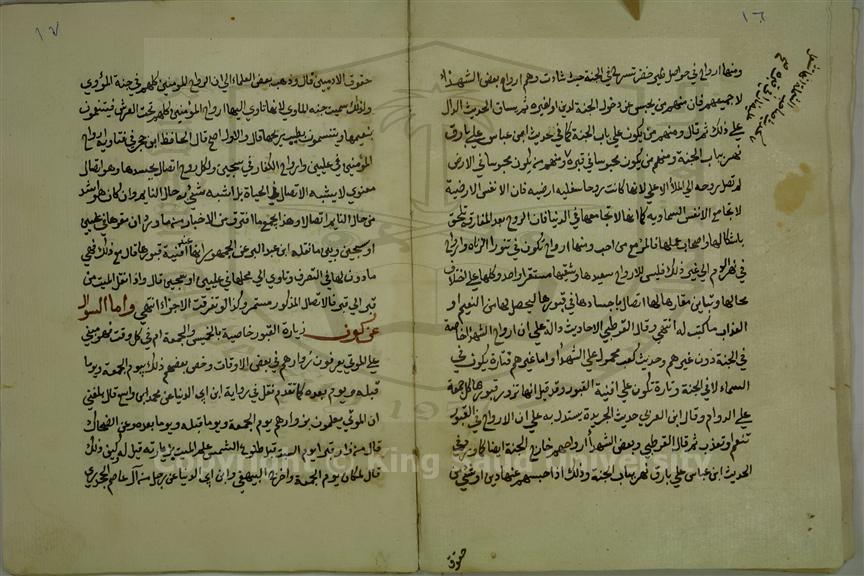 ١٦
ومنها ارواح في حواصل طير خضر تسرح في الجنة حيث شاءت وهم ارواح بعض الشهداء
لا جميعهم فان منهم من يحبس عن دخول الجنة لدين او لغيره ثم ساق الحديث الدال
علي ذلك ثم قال ومنهم من يكون علي باب الجنة كما في حديث ابن عباس علي بارق
نهر بباب الجنة ومنهم من يكون محبوسا في قبره ومنهم من يكون محبوسا في الارض
لم تصل روحه الي الملأ الاعلي لانها كانت روحا سفليه ارضيه فان الانفس الارضية
لا تجامع الانفس السماويه كما انها لا تجامعها في الدنيا فان الروح بعد المفارقة تلحق
باشكالها واصحاب عملها فالمرء مع من احب ومنها ارواح تكون في تنور الزناه وارواح
في نهر الدم الي غير ذلك فليس للارواح سعيدها وشقيها مستقر واحد وكلها علي اختلاف
محالها وتباين مقارها لها اتصال باجسادها في قبورها ليحصل لها من النعيم او
العذاب ما كتب له انتهي وقال القرطبي الاحاديث دالة علي ان ارواح الشهدا خاصة
في الجنة دون غيرهم وحديث كعب محمول علي الشهدا واما غيرهم فتارة يكون في
السماء لا في الجنة وتارة تكون علي افنية القبور وقد قيل انها تزور قبورها كل جمعة
علي الدوام وقال ابن العربي حديث الجريدة يستدل به علي ان الارواح في القبور
تنعم او تعذب ثم قال القرطبي وبعض الشهدا ارواحهم خارج الجنة ايضا كما في
الحديث ابن عباس علي بارق نهر بباب الجنة وذلك اذا حبسهم عنها دين او شي من
حقوق
١٧
حقوق الادميين قال وذهب بعض العلماء الي ان ارواح المومنين كلهم في جنة المأوي
ولذلك سميت جنه الماوي لانها تاوي اليها ارواح المومنين كلهم تحت العرش فيتنعمون
بنعيمها ويتنسمون بطيب ريحها قال والاول اصح قال الحافظ ابن حجر في فتاويه ارواح
المومنين في عليين وارواح الكفار في سجين ولكل روح اتصال بجسدها وهو اتصال
معنوي لا يشبه الاتصال في الحياة بل اشبه شي به حال النايم وان كان هو اشد
من حال النايم اتصالا وبهذا يجمع ما افترق من الاخبار من ما ورد ان مقرها في عليين
او سجين وبين ما نقله ابن عبد البر عن الجمهور انها عند افنية قبورها قال مع ذلك فهي
ماذون لها في التصرف وتاوي الي محلها في عليين او سجين قال واذا نقل الميت من
قبر الي قبر فالاتصال المذكور مستمر وكذا لو تفرقت الاجزاء انتهي واما السوال
عن كون زيارة القبور خاصية بالخميس والجمعة ام في كل وقت فهو مبني
علي الموتي يعرفون زوارهم في بعض الاوقات وخص بعضهم ذلك بيوم الجمعة ويوما
قبله ويوم بعده كما تقدم فقل في رواية ابن ابي الدنيا عن محمد ابن واسع قال بلغني
ان الموتي يعلمون بزوارهم يوم الجمعة ويوما قبله ويوما بعده وعن الضحاك
قال من زار قبرا يوم السبت قبل طلوع الشمس علم الميت بزيارته قيل له وكيف ذلك
قال لمكان يوم الجمعة واخرج البيهقي وابن ابي الدنيا عن رجل من آل عاصم الجحدري